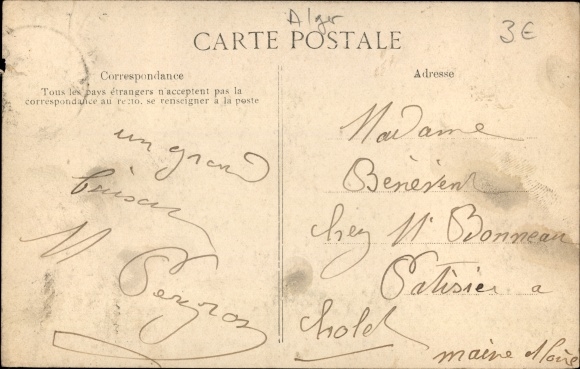 Alger
3€
CARTE POSTALE
Correspondance
Tous les pays étrangers n'acceptent pas la
correspondance au recto, se renseigner à la poste
un grand
M
Adresse
Madame
Bénévent
chez Mr Bonneau
Patisier a
Cholet
maine Loire